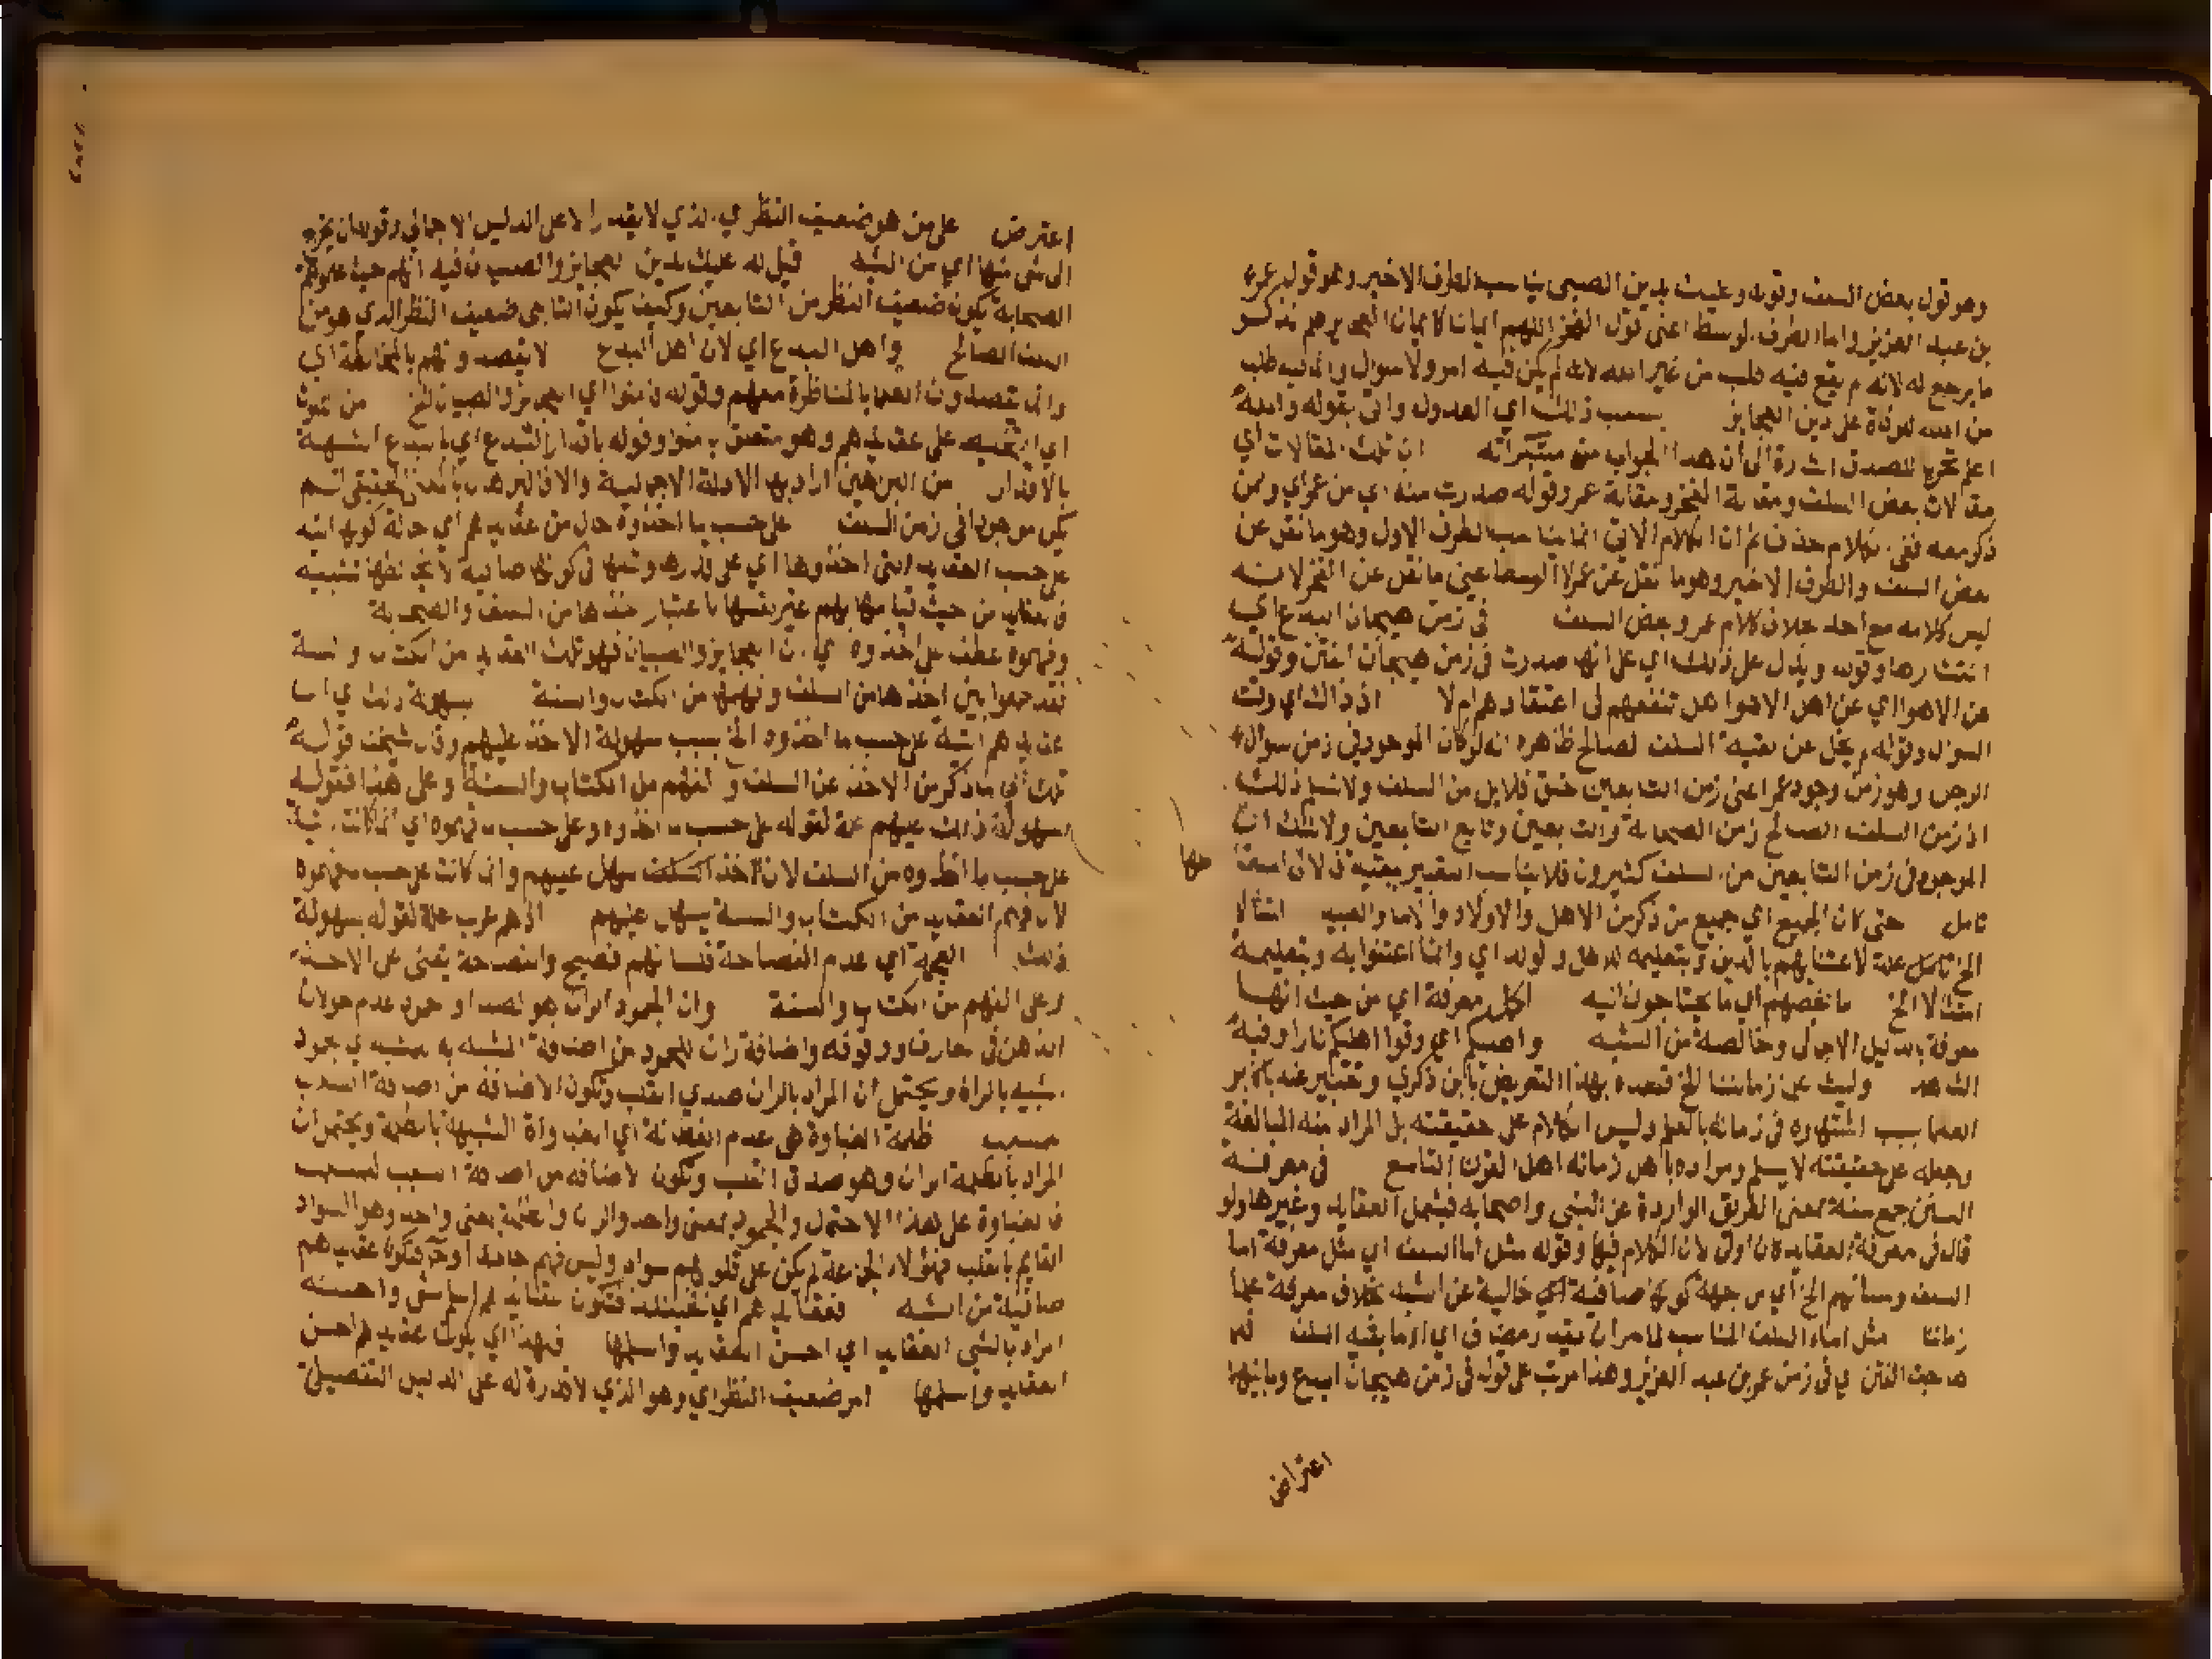 وهو قول بعض السلف وقوله وعليك بدين الصبي يناسب الطرف الاخير وهو قول عمر
بن عبد العزيز واما الطرف الوسط اعني قول الفخر اللهم ايمانا كايمان العجايز فلم يذكر
ما يرجع له لانه لم يقع فيه طلب من غير الله لانه لم يكن فيه امر ولا سوال وانما فيه طلب
من الله الوفاة على دين العجايز بسبب ذلك اي العدول واتى بقوله والله
اعلم تحريا للصدق اشارة الى ان هذا الجواب من مبتكراته ان تلك المقالات اي
مقالات بعض السلف ومقالة الفخر ومقالة عمر وقوله صدرت منه اي من عمر اي ومن
ذكر معه ففي الكلام حذف ثم ان الكلام الاتي انما يناسب الطرف الاول وهو ما نقل عن
بعض السلف والطرف الاخير وهو ما نقل عن عمر لا الوسط اعني ما نقل عن الفخر لانه
ليس كلامه مع احد بخلاف كلام عمر وبعض السلف في زمن هيجان البدع اي
انتشارها وقوله ويدل على ذلك اي على انها صدرت في زمن هيجان الفتن وقوله
عن الاهوا اي عن اهل الاهوا هل تنفعهم في اعتقادهم ام لا اذ ذاك اي وقت
السوال وقوله لم يخل عن بقية السلف الصالح ظاهره انه لو كان الموجود في زمن سوال
الرجل وهو زمن وجود عمر اعني زمن التابعين خلق قلايل من السلف ولا شك
اذ زمن السلف الصالح زمن الصحابة والتابعين وتابع التابعين ولا شك ان
الموجود في زمن التابعين من السلف كثيرون فلا يناسب التعبير ببقية
تامل حتى كان الجميع اي جميع من ذكر من الاهل والاولاد والاما والعبيد امتثالا
الخ علة لاعتنايهم بالدين وبتعليمه للاهل والولد اي وانما اعتنوا به وبتعليمه
امتثالا الخ ما يخصهم اي ما يحتاجون اليه اكل معرفة اي من حيث انها
معرفة بالدليل الاجمالي وخالصة من الشبه واهليكم اي وقوا اهليكم نارا وفيه
الشاهد وليت عن زماننا الخ قصده بهذا التعريض بابن ذكري
العلما بسبب اشتهاره في زمانه بالعلم وليس الكلام على حقيقته بل المراد منه المبالغة
وجعله على حقيقته لا يسلم ومراده باهل زمانه اهل القرن التاسع في معرفة
السنن جمع سنة بمعنى الطريق الواردة عن النبي واصحابه فيشمل العقايد وغيرها ولو
قال في معرفة العقايد كان اولى لان الكلام فيها وقوله مثل اما السلف اي مثل معرفة اما
السلف وصبيانهم الخ اي من جهة كونها صافية اي خالية عن الشبه بخلاف معرفة علما
زماننا مثل اماء السلف المناسب لما مر ان يقيد
هاجت الفتن اي في زمن عمر بن عبد العزيز وهذا مرتب على قوله في زمن هيجان البدع وما بينهما
اعتراض
اعترض على من هو ضعيف النظر اي الذي لا يقدر الا على الدليل الاجمالي وقوله ان يخرج
الى شي منها اي من الشبه قيل له عليك بدين العجايز والصبيان فيه انهم حيث
الصحابة يكون ضعيف النظر من التابعين وكيف يكون التابعي ضعيف النظر الذي هو من
السلف الصالح واهل البدع اي لان اهل البدع لا يقصدونهم بالمخالطة اي
وانما يقصدون العلما بالمناظرة معهم وقوله
اي ابقيه على عقايدهم وهو متعلق
بالاقدار من البراهين اراد بها الادلة الاجمالية والا فالبرهان بالمعنى الحقيقي لم
يكن موجودا في زمن السلف على حسب ما اخذوه حال من عقايدهم اي حالة كونها اتية
على حسب العقايد التي اخذوها اي على قدرها
من حيث قيامها بهم غير نفسها باعتبار اخذها من السلف والصحابة
وفهموه عطف على اخذوه اي ان العجايز والصبيان فهموا تلك العقايد من الكتاب والسنة
فقد جمعوا بين اخذها من السلف وفهمها من الكتاب والسنة بسهولة
عقايدهم اتية على حسب ما اخذوه الخ بسبب سهولة الاخذ عليهم وقال شيخنا قوله
ذلك اي ما ذكر من الاخذ عن السلف والفهم من الكتاب والسنة وعلى هذا فقوله
لسهولة ذلك عليهم علة لقوله على حسب ما اخذوه وعلى حسب ما فهموه اي انما كانت
على حسب ما اخذوه من السلف لان الاخذ السلف سهل عليهم وانما كانت على حسب ما فهموه
لان فهم العقايد من الكتاب والسنة يسهل عليهم اذ هم عرب علة لقوله بسهولة
ذلك العجمة اي عدم الفصاحة فلسانهم فصيح والفصاحة تعين على الاخذ
وعلى الفهم من الكتاب والسنة وران الجمود الران هو الصدا والجمود عدم جولان
الذهن في المعارف ووقوفه واضافة ران للجمود من اضافة المشبه به للمشبه اي جمود
شبيه بالران ويحتمل ان المراد بالران صدي القلب وتكون الاضافة من اضافة السبب
للمسبب ظلمة الغباوة هي عدم الفطانة اي الغباوة الشبيهة بالظلمة ويحتمل ان
المراد بالظلمة الران وهو صدي القلب وتكون الاضافة من اضافة السبب للمسبب
فالغباوة على هذا الاحتمال والجمود بمعنى واحد والران والظلمة بمعنى واحد وهو السواد
القايم بالقلب فهؤلاء الجماعة لم يكن على قلوبهم سواد وليس فهمهم جامدا فتكون عقايدهم
صافية من الشبه فعقايدهم فتكون عقايدهم اسلم شي واحسنه
المراد بالشي العقايد اي احسن العقايد واسلمها فهذا اي بكون عقايدهم احسن
العقايد واسلمها امر ضعيف النظر اي وهو الذي لا قدرة له على الدليل التفصيلي